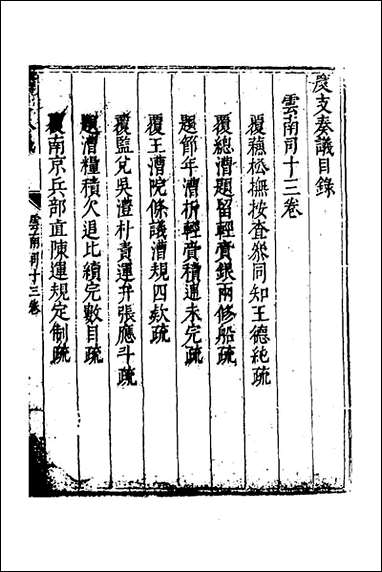 度支奏議目錄
雲南司十三卷
覆蘇松撫按查叅同知王德純疏
覆總漕題留輕賫銀兩修船疏
題節年漕折輕賫積逋未完疏
覆王漕院條議漕規四欵疏
覆監兌吳澧朴責運弁張應斗疏
題漕糧積欠追比續完數目疏
覆南京兵部直陳運規定制疏
雲南司十三卷